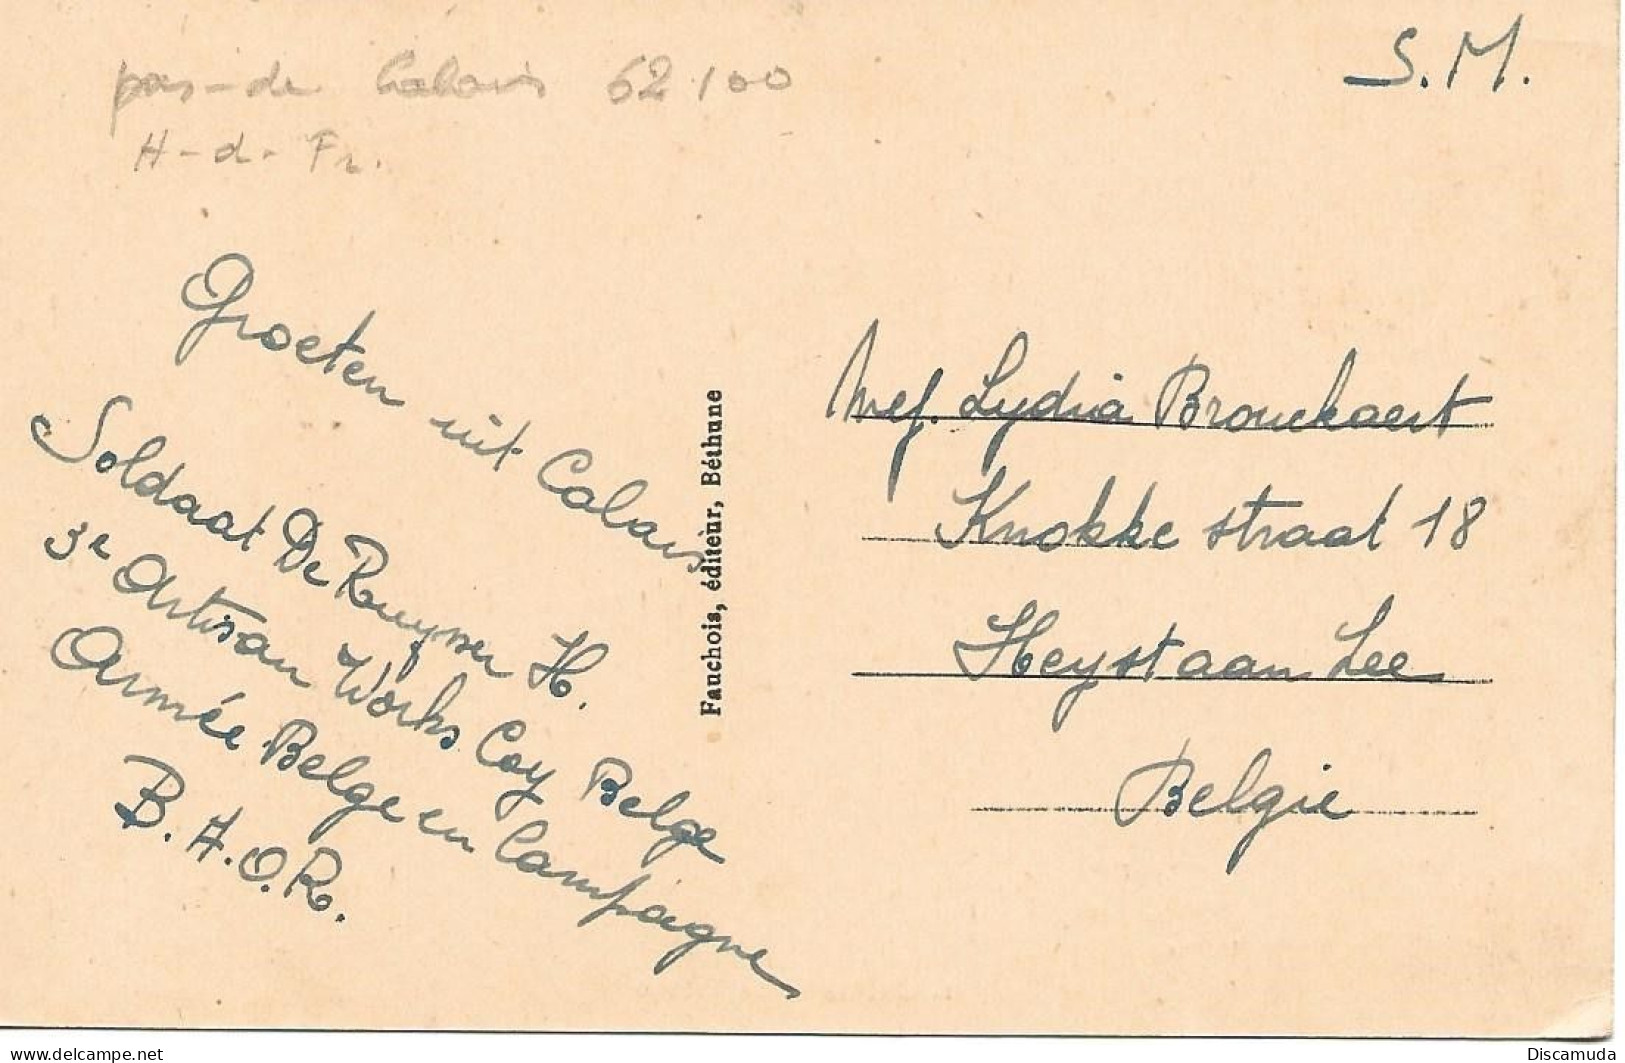 S.M.
pas-de Calais 62100
H-d-Fr.
Groeten uit Calais
Soldaat De Ruysser H.
3e Artisan Works Coy Belge
Armée Belge en Campagne
B.A.O.R.
Fauchois, éditeur, Béthune
Mej. Lydia Brouckaert
Knokke straat 18
Heyst aan Zee
Belgie
www.delcampe.net
Discamuda